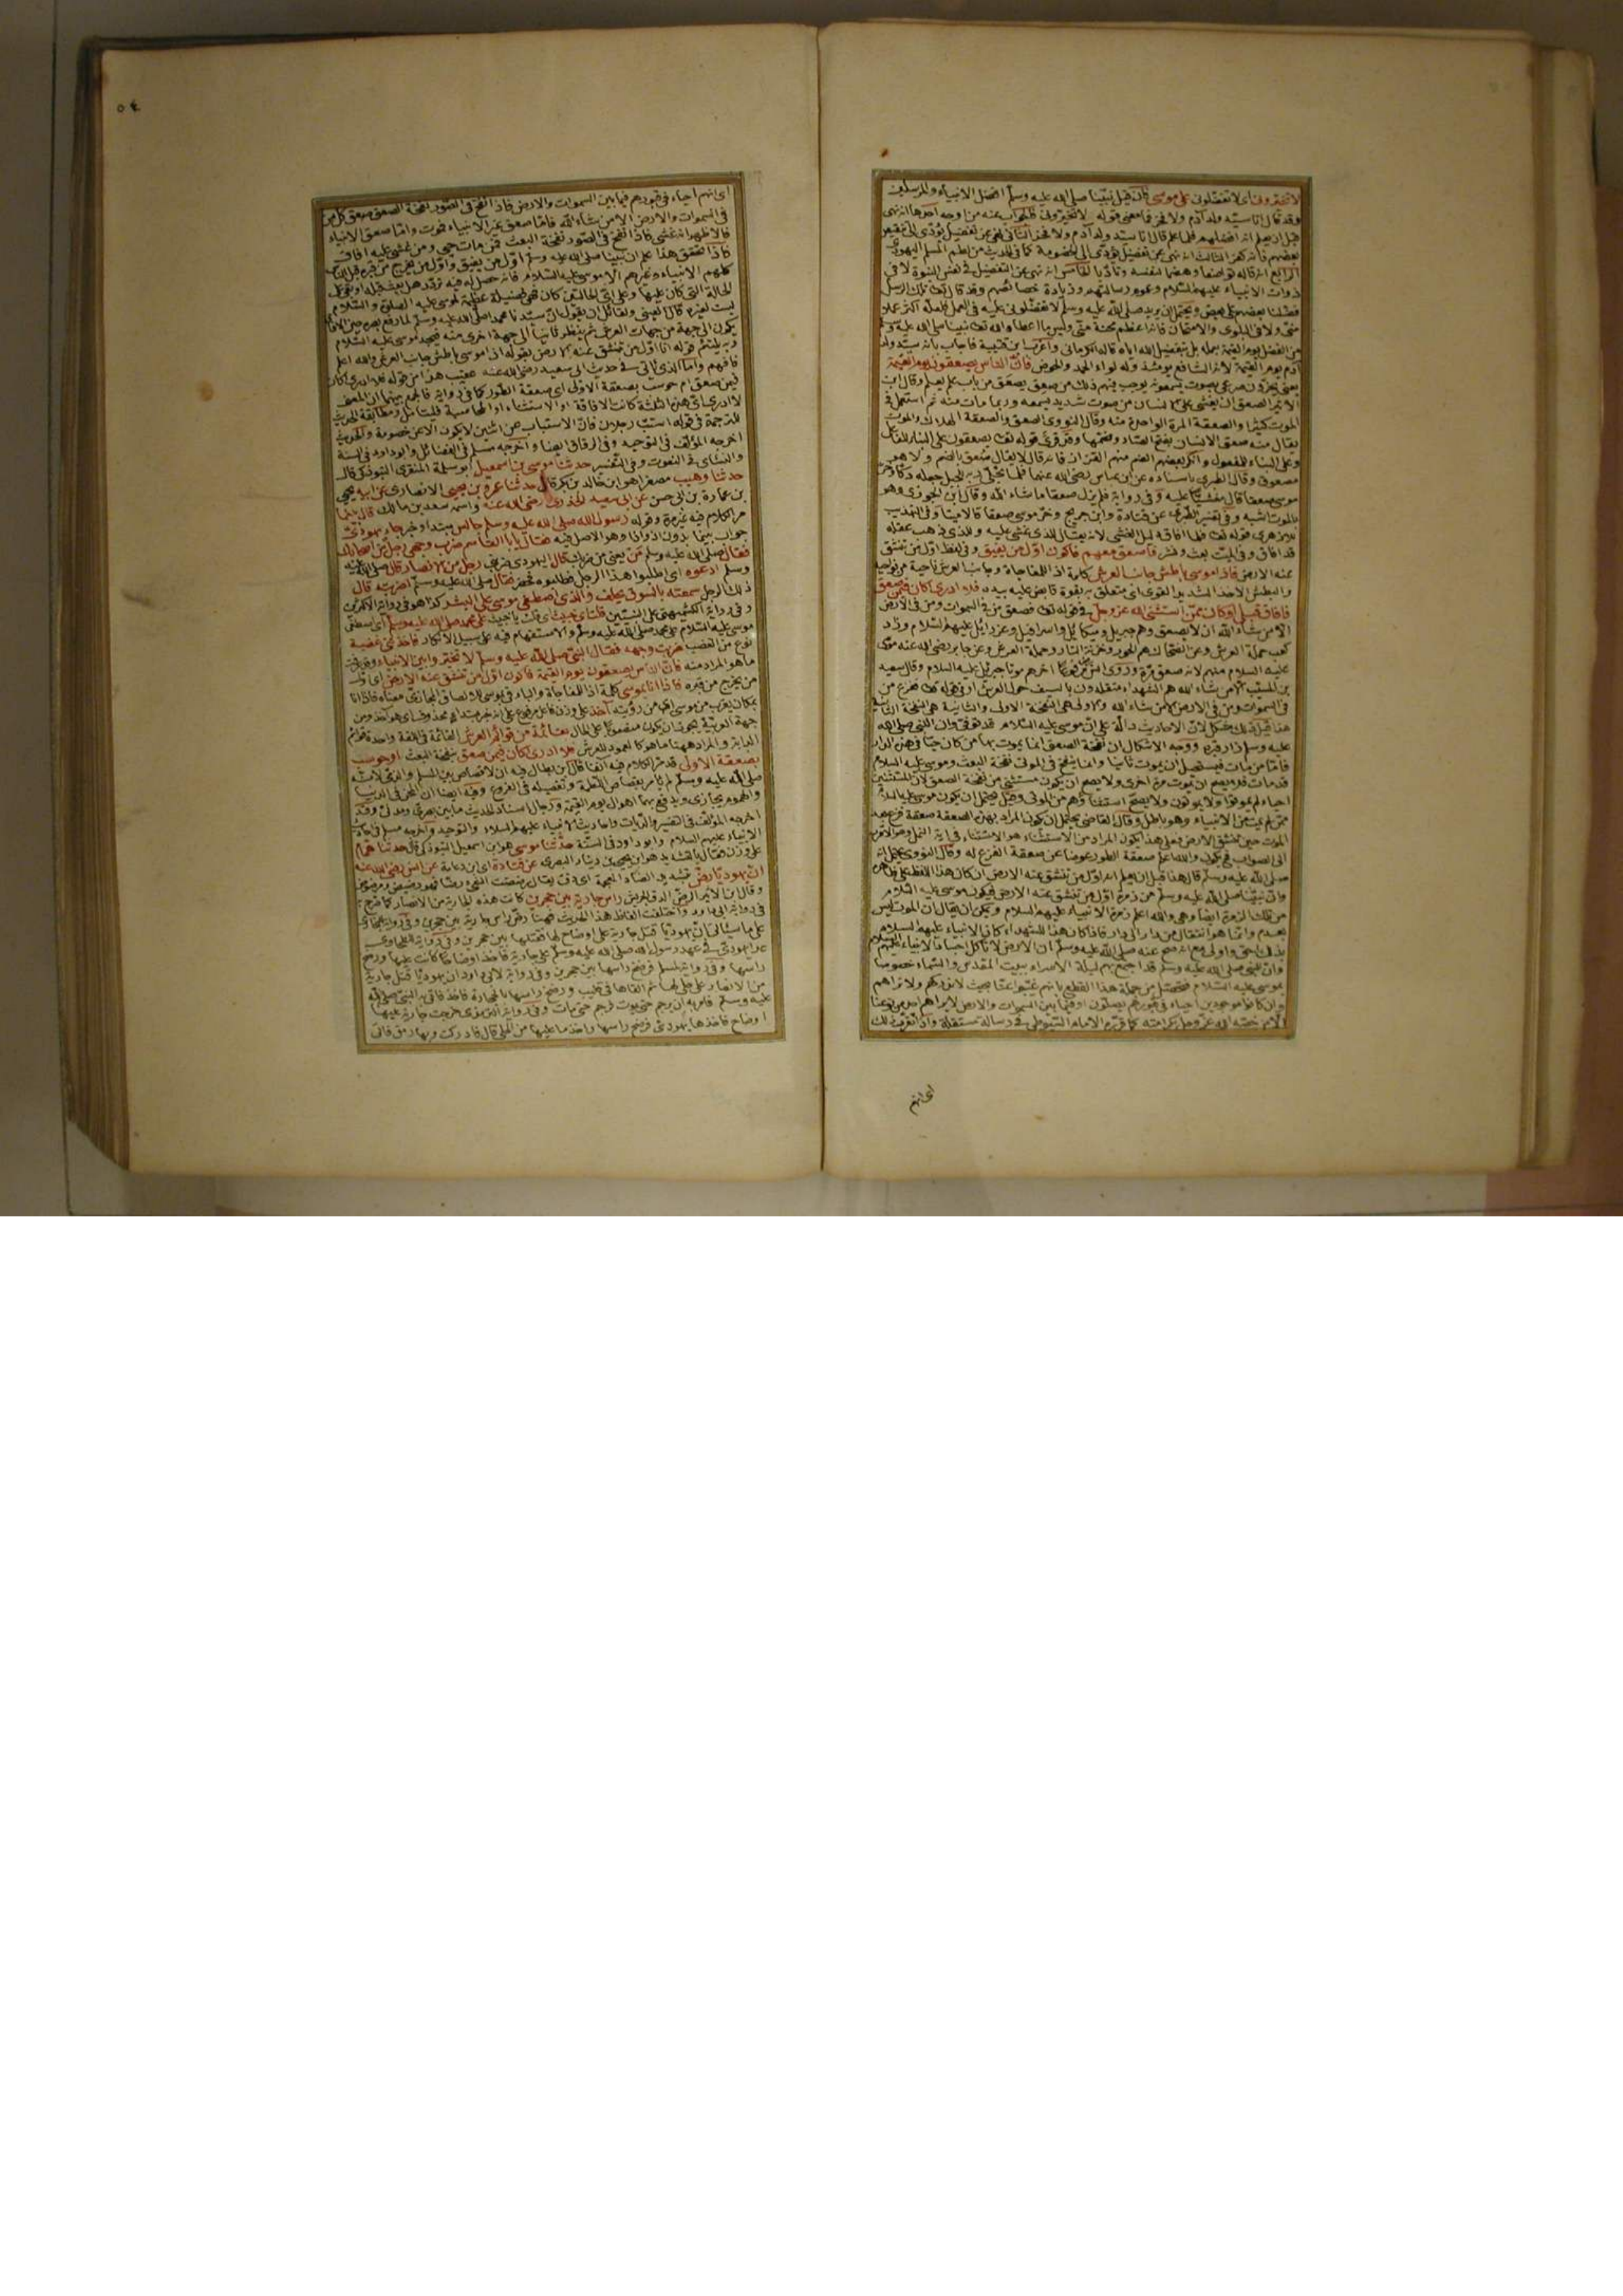 لا تخيروني اى لا تفضلونى على موسى فان قيل نبينا صلى الله عليه وسلم افضل الانبياء والمرسلين
وقد قال انا سيد ولد آدم ولا فخر فما معنى قوله لا تخيرونى فالجواب عنه من اوجه احدها انه نهى
قبل ان يعلم انه افضلهم فلما علم قال انا سيد ولد آدم ولا فخر الثانى نهى عن تفضيل يؤدى الى تنقيص
بعضهم فانه كفر الثالث انه نهى عن تفضيل يؤدى الى الخصومة كما فى الحديث من لطم المسلم اليهودى
الرابع انه قاله تواضعا وهضما لنفسه وتأدبا الخامس انه نهى عن التفضيل فى نفس النبوة لا فى
ذوات الانبياء عليهم السلام وعموم رسالتهم وزيادة خصائصهم وقد قال تعا تلك الرسل
فضلنا بعضهم على بعض ويحتمل ان يريد صلى الله عليه وسلم لا تفضلونى عليه فى العمل فلعله اكثر عملا
منى ولا فى البلوى والامتحان فانه اعظم محنة منى وليس ما اعطاه الله تعا نبينا صلى الله عليه وسلم
من الفضل يوم القيمة بعمله بل بتفضيل الله اياه قاله الكرمانى واغرب ابن قتيبة فاجاب بانه سيد ولد
آدم يوم القيمة لانه الشافع يومئذ وله لواء الحمد والحوض فان الناس يصعقون يوم القيمة
يعنى يخرون صرعى بصوت يسمعونه يوجب فيهم ذلك من صعق يصعق من باب علم يعلم وقال ابن
الاثير الصعق ان يغشى على الانسان من صوت شديد يسمعه وربما مات منه ثم استعمل فى
الموت كثيرا والصعقة المرة الواحدة منه وقال النووى الصعق والصعقة الهلاك والموت
يقال منه صعق الانسان بفتح الصاد وضمها وقد قرئ قوله تعا يصعقون على البناء للفاعل
وعلى البناء للمفعول وانكر بعضهم الضم منهم القزاز فانه قال لا يقال صعق بالضم ولا هو
مصعوق وقال الطبرى باسناده عن ابن عباس رضى الله عنهما فلما تجلى ربه للجبل جعله دكا وخر
موسى صعقا قال مغشيا عليه وفى رواية فلم يزل صعقا ما شاء الله وقال ابن الجوزى وهو
بالموت اشبه وفى تفسير الطبرى عن قتادة وابن جريج وخر موسى صعقا قالا ميتا وفى التهذيب
للازهرى قوله تعا فلما افاق دليل الغشى لانه يقال للذى غشى عليه والذى ذهب عقله
قد افاق وفى الميت بعث ونشر فاصعق معهم فاكون اول من يفيق وفى لفظ اول من تنشق
عنه الارض فاذا موسى باطش جانب العرش كلمة اذا للمفاجاة وجانب العرش ناحية من نواحيه
والبطش الاخذ الشديد القوى اى متعلق به بقوة قابض عليه بيده فلا ادرى اكان فيمن صعق
فافاق قبلى او كان ممن استثنى الله عز وجل فى قوله تعا فصعق من فى السموات ومن فى الارض
الا من شاء الله ان لا يصعق وهم جبريل وميكائيل واسرافيل وعزرائيل عليهم السلام وزاد
كعب حملة العرش وعن الضحاك هم الحور وخزنة النار وحملة العرش وعن جابر رضى الله عنه موسى
عليه السلام منهم لانه صعق مرة وروى انس مرفوعا آخرهم موتا جبريل عليه السلام وقال سعيد
بن المسيب الا من شاء الله هم الشهداء متقلدون بالسيف حول العرش
هذا قيل ذلك مشكل لان الاحاديث دالة على ان موسى عليه السلام قد توفى وان النبى صلى الله
عليه وسلم زار قبره ووجه الاشكال ان نفخة الصعق انما يموت بها من كان حيا فى هذه الدار
فاما من مات فيستحيل ان يموت ثانيا وانما ينفخ فى الموتى نفخة البعث وموسى عليه السلام
قد مات فلا يصح ان يموت مرة اخرى ولا يصح ان يكون مستثنى من نفخة الصعق لان المستثنين
احياء لم يموتوا ولا يموتون ولا يصح استثناؤهم من الموتى وقيل يحتمل ان يكون موسى عليه السلام
ممن لم يمت من الانبياء وهو باطل وقال القاضى يحتمل ان يكون المراد بهذه الصعقة صعقة فزع بعد
الموت حين تنشق الارض فعلى هذا يكون المراد من الاستثناء هو الاستثناء فى اية النمل وهو الاقرب
الى الصواب فيكون والله اعلم صعقة الطور عوضا عن صعقة الفزع له وقال النووى يحتمل انه
صلى الله عليه وسلم قال هذا قبل ان يعلم انه اول من تنشق عنه الارض ان كان هذا اللفظ على ظاهره
وان نبينا صلى الله عليه وسلم من زمرة اول من تنشق عنه الارض فيكون موسى عليه السلام
من تلك الزمرة ايضا وهى والله اعلم زمرة الانبياء عليهم السلام ويمكن ان يقال ان الموت ليس
بعدم وانما هو انتقال من دار الى دار فاذا كان هذا للشهداء كان الانبياء عليهم السلام
بذلك احق واولى مع انه صح عنه صلى الله عليه وسلم ان الارض لا تاكل اجساد الانبياء عليهم السلام
وان النبى صلى الله عليه وسلم قد اجتمع بهم ليلة الاسراء ببيت المقدس والسماء خصوصا
بموسى عليه السلام فتحصل من جملة هذا القطع بانهم غيبوا عنا بحيث لا ندركهم ولا نراهم
وان كانوا موجودين احياء فى قبورهم يصلون
الا من خصه الله عز وجل بكرامته كما قرره الامام السيوطى فى رسالة مستقلة واذا تقرر ذلك
اى انهم
٥٤
اى انهم احياء فى قبورهم فيما بين السموات والارض فاذا نفخ فى الصور نفخة الصعق صعق كل من
فى السموات والارض الا من شاء الله فاما صعق غير الانبياء فموت واما صعق الانبياء
فالاظهر انه غشى فاذا نفخ فى الصور نفخة البعث فمن مات حيى ومن غشى عليه افاق
فاذا تحقق هذا علم ان نبينا صلى الله عليه وسلم اول من يفيق واول من يخرج من قبره قبل الناس
كلهم الانبياء وغيرهم الا موسى عليه السلام فانه حصل له فيه تردد هل بعث قبله او بقى على
الحالة التى كان عليها وعلى اى الحالتين كان فهى فضيلة عظيمة لموسى عليه الصلوة والسلام
ليست لغيره قال العينى ولقائل ان يقول ان سيدنا محمدا صلى الله عليه وسلم لما رفع بصره حين الافاقة
يكون الى جهة من جهات العرش ثم ينظر ثانيا الى جهة اخرى منه فيجد موسى عليه السلام
وبه يلتئم قوله انا اول من تنشق عنه الارض بقوله اذا موسى باطش جانب العرش والله اعلم
فافهم واما الذى ياتى فى حديث ابى سعيد رضى الله عنه عقيب هذا من قوله فلا ادرى اكان
فيمن صعق ام حوسب بصعقة الاولى اى صعقة الطور كما فى رواية فالجمع بينهما ان المعنى
لا ادرى اى هذه الثلثة كانت الافاقة او الاستثناء او المحاسبة فليتامل ومطابقة الحديث
للترجمة فى قوله استب رجلان فان الاستباب عن اثنين لا يكون الا عن خصومة والحديث
اخرجه المؤلف فى التوحيد وفى الرقاق ايضا واخرجه مسلم فى الفضائل وابو داود فى السنة
والنسائى فى النعوت وفى التفسير حدثنا موسى بن اسمعيل ابو سلمة المنقرى التبوذكى قال
حدثنا وهيب مصغرا هو ابن خالد بن بكر قال حدثنا عمرو بن يحيى الانصارى عن ابيه يحيى
بن عمارة بن ابى حسن عن ابى سعيد الخدرى رضى الله عنه واسمه سعد بن مالك قال بينما
مر الكلام فيه غير مرة وقوله رسول الله صلى الله عليه وسلم جالس مبتدا وخبر جاء يهودى
جواب بينما بدون اذ واذا وهو الاصل فيه فقال يا ابا القاسم ضرب وجهى رجل من اصحابك
فقال صلى الله عليه وسلم من يعنى من ضربك قال اليهودى ضربنى رجل من الانصار قال صلى الله عليه
وسلم ادعوه اى اطلبوا هذا الرجل فطلبوه فحضر فقال صلى الله عليه وسلم اضربته قال
ذلك الرجل سمعته بالسوق يحلف والذى اصطفى موسى على البشر كذا هو فى رواية الاكثرين
وفى رواية الكشميهنى على النبيين قلت اى خبيث اى قلت يا خبيث على محمد صلى الله عليه وسلم اى اصطفى
موسى عليه السلام على محمد صلى الله عليه وسلم والاستفهام فيه على سبيل الانكار فاخذتنى غضبة
نوع من الغضب ضربت وجهه فقال النبى صلى الله عليه وسلم لا تخيروا بين الانبياء وقد عرفت
ما هو المراد منه فان الناس يصعقون يوم القيمة فاكون اول من تنشق عنه الارض اى اول
من يخرج من قبره فاذا انا بموسى كلمة اذا للمفاجاة والباء فى بموسى للالصاق المجازى معناه فاذا انا
بمكان يقرب من موسى اقرب من رؤيته آخذ على وزن فاعل مرفوع على انه خبر مبتدا محذوف اى هو آخذ ومن
جهة العربية يجوز ان يكون منصوبا على الحال بقائمة من قوائم العرش القائمة فى اللغة واحدة قوائم
الدابة والمراد ههنا ما هو كالعمود للعرش فلا ادرى اكان فيمن صعق بنفخة البعث او حوسب
بصعقة الاولى قد مر الكلام فيه آنفا قال ابن بطال فيه ان لا قصاص بين المسلم والذمى لانه
صلى الله عليه وسلم لم يامر بقصاص اللطمة وتفصيله فى الفروع وفيه ايضا ان المحن فى الدنيا
والهموم يجازى ويدفع بها اهوال يوم القيمة ورجال اسناد الحديث ما بين بصرى ومدنى وقد
اخرجه المؤلف فى التفسير والديات واحاديث الانبياء عليهم السلام والتوحيد واخرجه مسلم فى احاديث
الانبياء عليهم السلام وابو داود فى السنة حدثنا موسى هو ابن اسمعيل التبوذكى قال حدثنا همام
على وزن فعال بالتشديد هو ابن يحيى بن دينار البصرى عن قتادة اى ابن دعامة عن انس رضى الله عنه
ان يهوديا رض بتشديد الضاد المعجمة اى دق يقال رضضت الشئ رضا فهو رضيض ومرضوض
وقال ابن الاثير الرض الدق الجريش راس جارية بين حجرين كانت هذه الجارية من الانصار كما صرح به
فى رواية ابى داود واختلفت الفاظ هذا الحديث فههنا رض راس جارية بين حجرين وفى رواية البخارى
على ما سيأتى ان يهوديا قتل جارية على اوضاح لها فقتلها بين حجرين وفى رواية الطحاوى
عدا يهودى فى عهد رسول الله صلى الله عليه وسلم على جارية فاخذ اوضاحا كانت عليها ورضخ
راسها وفى رواية لمسلم فرضخ راسها بين حجرين وفى رواية لابى داود ان يهوديا قتل جارية
من الانصار على حلى لها ثم القاها فى قليب ورضخ راسها بالحجارة فاخذ فاتى به النبى صلى الله
عليه وسلم فامر به ان يرجم حتى يموت فرجم حتى مات وفى رواية الترمذى خرجت جارية عليها
اوضاح فاخذها يهودى فرضخ راسها واخذ ما عليها من الحلى قال فادركت وبها رمق فاتى